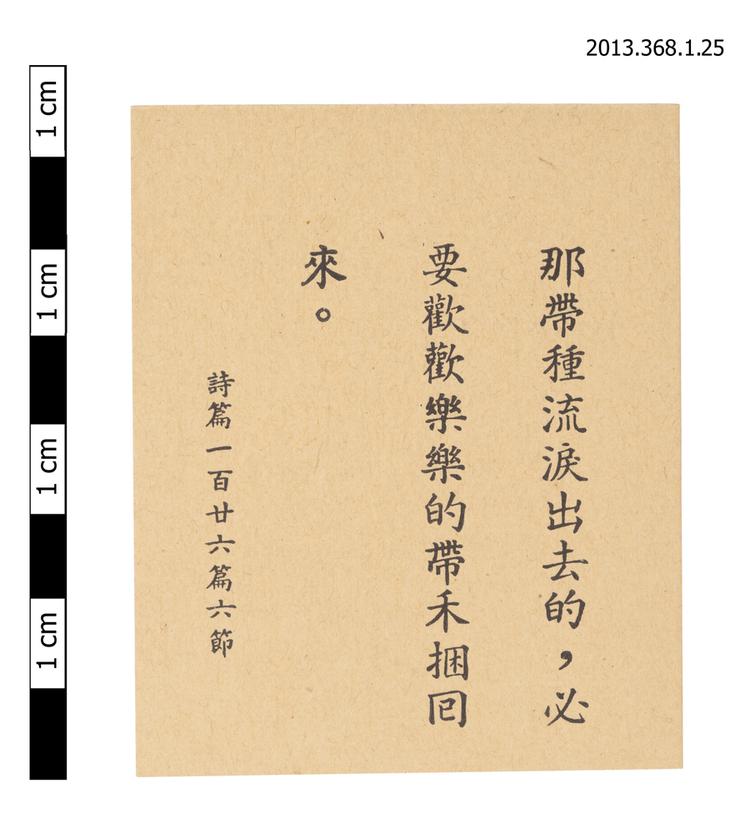 2013.368.1.25
1 cm
1 cm
1 cm
1 cm
那帶種流淚出去的，必
要歡歡樂樂的帶禾捆囘
來。
詩篇一百廿六篇六節